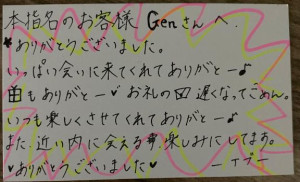 本指名のお客様 Genさんへ
★ありがとうございました。
いっぱい会いに来てくれてありがとー♪
もありがとー♥お礼の 遅くなってごめん。
いつも楽しくさせてくれてありがとー♪
また、近い内に会える事、楽しみにしてます。
♥ありがとうございました♥